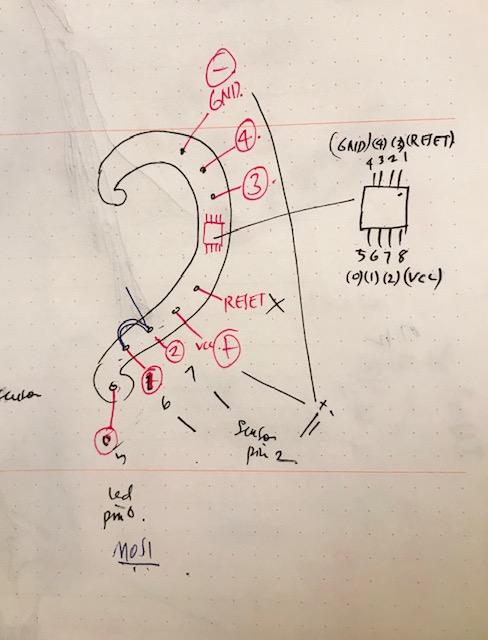 −
GND.
4.
3.
(GND)(4)(3)(RESET)
4 3 2 1
5 6 7 8
(0)(1)(2)(VCC)
RESET X
VCC +
2
1
7
6
5
0
+
Sensor
pin 2
Sensor
Led
pin 0.
MOSI